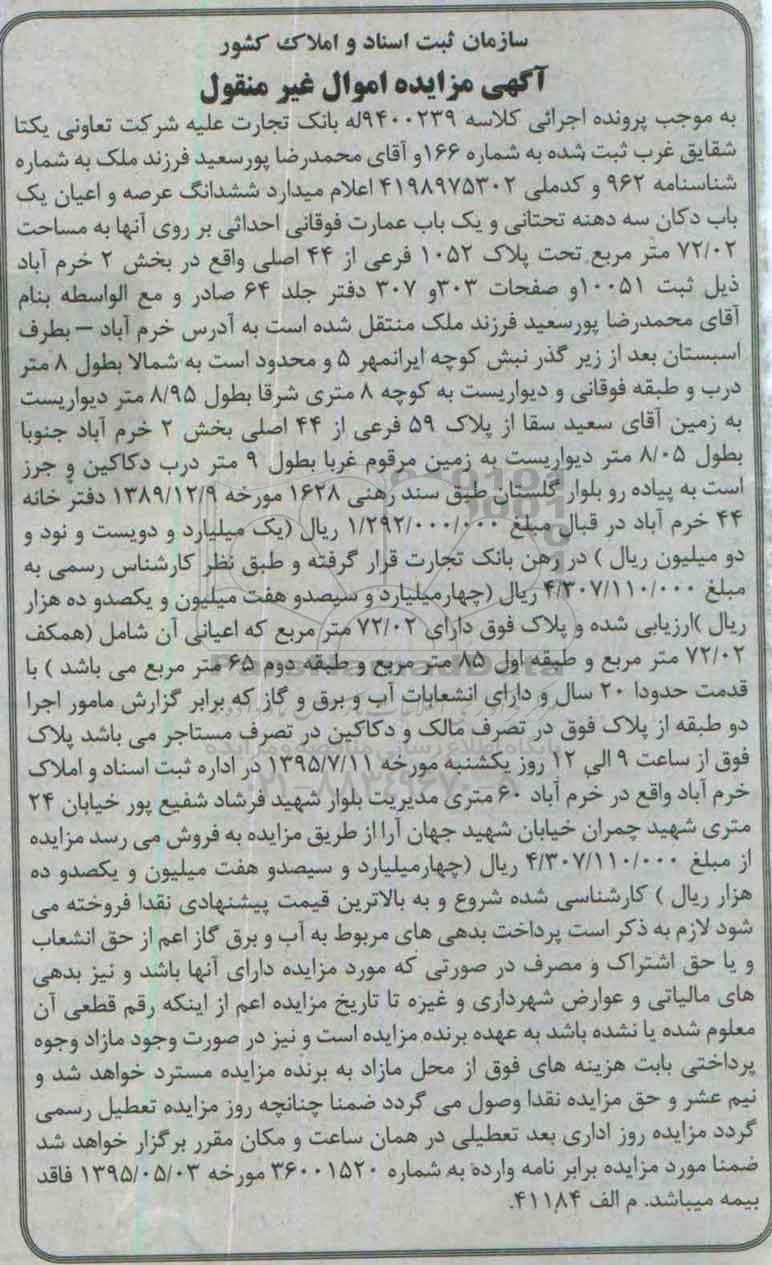 سازمان ثبت اسناد و املاک کشور
آگهی مزایده اموال غیر منقول
به موجب پرونده اجرائی کلاسه ۹۴۰۰۲۳۹له بانک تجارت علیه شرکت تعاونی یکتا
شقایق غرب ثبت شده به شماره ۱۶۶و آقای محمدرضا پورسعید فرزند ملک به شماره
شناسنامه ۹۶۲ و کدملی ۴۱۹۸۹۷۵۳۰۲ اعلام میدارد ششدانگ عرصه و اعیان یک
باب دکان سه دهنه تحتانی و یک باب عمارت فوقانی احداثی بر روی آنها به مساحت
۷۲/۰۲ متر مربع تحت پلاک ۱۰۵۲ فرعی از ۴۴ اصلی واقع در بخش ۲ خرم آباد
ذیل ثبت ۱۰۰۵۱و صفحات ۳۰۳و ۳۰۷ دفتر جلد ۶۴ صادر و مع الواسطه بنام
آقای محمدرضا پورسعید فرزند ملک منتقل شده است به آدرس خرم آباد – بطرف
اسبستان بعد از زیر گذر نبش کوچه ایرانمهر ۵ و محدود است به شمالا بطول ۸ متر
درب و طبقه فوقانی و دیواریست به کوچه ۸ متری شرقا بطول ۸/۹۵ متر دیواریست
به زمین آقای سعید سقا از پلاک ۵۹ فرعی از ۴۴ اصلی بخش ۲ خرم آباد جنوبا
بطول ۸/۰۵ متر دیواریست به زمین مرقوم غربا بطول ۹ متر درب دکاکین و جرز
است به پیاده رو بلوار گلستان طبق سند رهنی ۱۶۲۸ مورخه ۱۳۸۹/۱۲/۹ دفتر خانه
۴۴ خرم آباد در قبال مبلغ ۱/۲۹۲/۰۰۰/۰۰۰ ریال (یک میلیارد و دویست و نود و
دو میلیون ریال ) در رهن بانک تجارت قرار گرفته و طبق نظر کارشناس رسمی به
مبلغ ۴/۳۰۷/۱۱۰/۰۰۰ ریال (چهارمیلیارد و سیصدو هفت میلیون و یکصدو ده هزار
ریال )ارزیابی شده و پلاک فوق دارای ۷۲/۰۲ متر مربع که اعیانی آن شامل (همکف
۷۲/۰۲ متر مربع و طبقه اول ۸۵ متر مربع و طبقه دوم ۶۵ متر مربع می باشد ) با
قدمت حدودا ۲۰ سال و دارای انشعابات آب و برق و گاز که برابر گزارش مامور اجرا
دو طبقه از پلاک فوق در تصرف مالک و دکاکین در تصرف مستاجر می باشد پلاک
فوق از ساعت ۹ الی ۱۲ روز یکشنبه مورخه ۱۳۹۵/۷/۱۱ در اداره ثبت اسناد و املاک
خرم آباد واقع در خرم آباد ۶۰ متری مدیریت بلوار شهید فرشاد شفیع پور خیابان ۲۴
متری شهید چمران خیابان شهید جهان آرا از طریق مزایده به فروش می رسد مزایده
از مبلغ ۴/۳۰۷/۱۱۰/۰۰۰ ریال (چهارمیلیارد و سیصدو هفت میلیون و یکصدو ده
هزار ریال ) کارشناسی شده شروع و به بالاترین قیمت پیشنهادی نقدا فروخته می
شود لازم به ذکر است پرداخت بدهی های مربوط به آب و برق گاز اعم از حق انشعاب
و یا حق اشتراک و مصرف در صورتی که مورد مزایده دارای آنها باشد و نیز بدهی
های مالیاتی و عوارض شهرداری و غیزه تا تاریخ مزایده اعم از اینکه رقم قطعی آن
معلوم شده یا نشده باشد به عهده برنده مزایده است و نیز در صورت وجود مازاد وجوه
پرداختی بابت هزینه های فوق از محل مازاد به برنده مزایده مسترد خواهد شد و
نیم عشر و حق مزایده نقدا وصول می گردد ضمنا چنانچه روز مزایده تعطیل رسمی
گردد مزایده روز اداری بعد تعطیلی در همان ساعت و مکان مقرر برگزار خواهد شد
ضمنا مورد مزایده برابر نامه وارده به شماره ۳۶۰۰۱۵۲۰ مورخه ۱۳۹۵/۰۵/۰۳ فاقد
بیمه میباشد. م الف ۴۱۱۸۴.